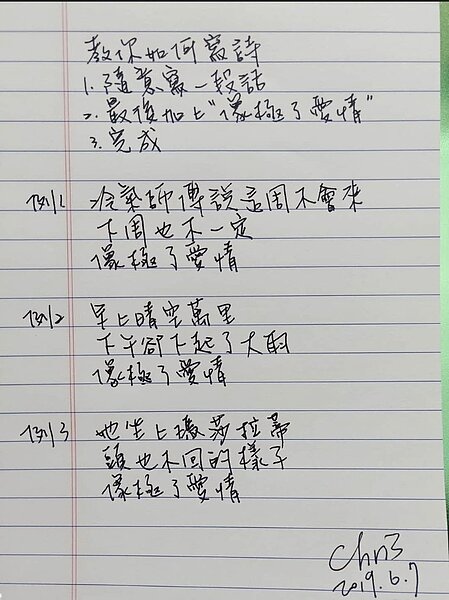 教你如何寫詩
1. 隨意寫一段話
2. 最後加上"像極了愛情"
3. 完成
例1 冷氣師傅說這周不會來
下周也不一定
像極了愛情
例2 早上晴空萬里
下午卻下起了大雨
像極了愛情
例3 她坐上瑪莎拉蒂
頭也不回的樣子
像極了愛情
Chris
2019.6.7